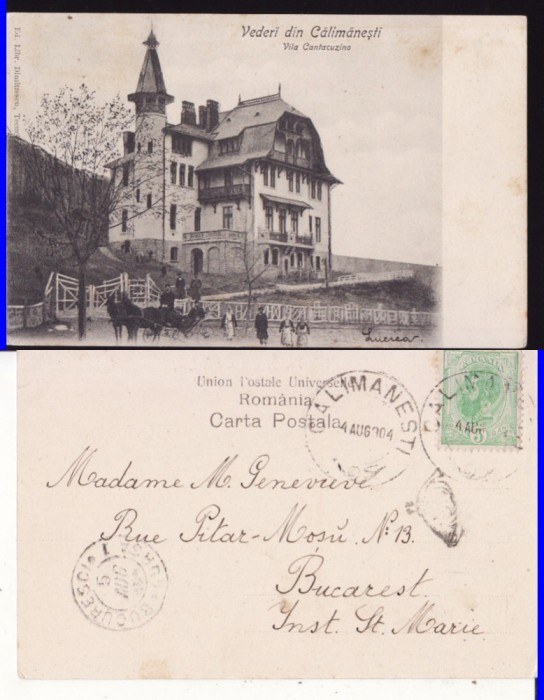 Vederi din Călimănești
Vila Cantacuzino
Ed. Libr. Dimitrescu,
Lucrea
Union Postale Universelle
România
Carta Postala
CALIMANESTI
4 AUG 904
CALIMA
4 AUG
5
Madame M. Genevieve
Rue Pitar-Moșŭ. N: 13.
Bucarest.
Inst. St. Marie.
BUCURESCI
5 AUG